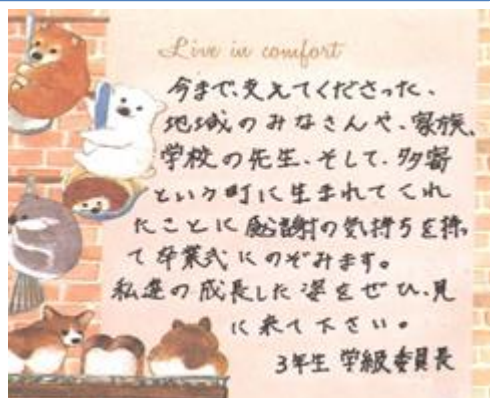 Live in comfort
今まで、支えてくださった、
地域のみなさんや、家族、
学校の先生、そして、多寄
という町に生まれてくれ
たことに感謝の気持ちを持っ
て卒業式にのぞみます。
私達の成長した姿をぜひ、見
に来て下さい。
3年生 学級委員長